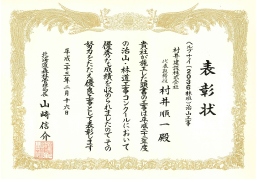 表彰状
ヘルナイ(2036林班)治山工事
村井建設株式会社
代表取締役
村井順一殿
貴社が施工した頭書の工事は平成二十二年度
の治山・林道工事コンクールにおいて
優秀な成績を収められましたのでその
努力をたたえ優良工事として表彰します
平成二十三年二月十六日
北海道森林管理局長
山崎信介